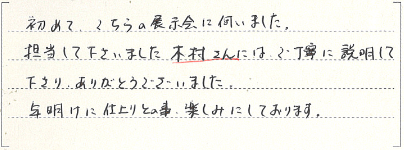 初めて、こちらの展示会に伺いました。
担当して下さいました木村さんには、ご丁寧に説明して
下さり、ありがとうございました。
年明けに仕上りとの事、楽しみにしております。